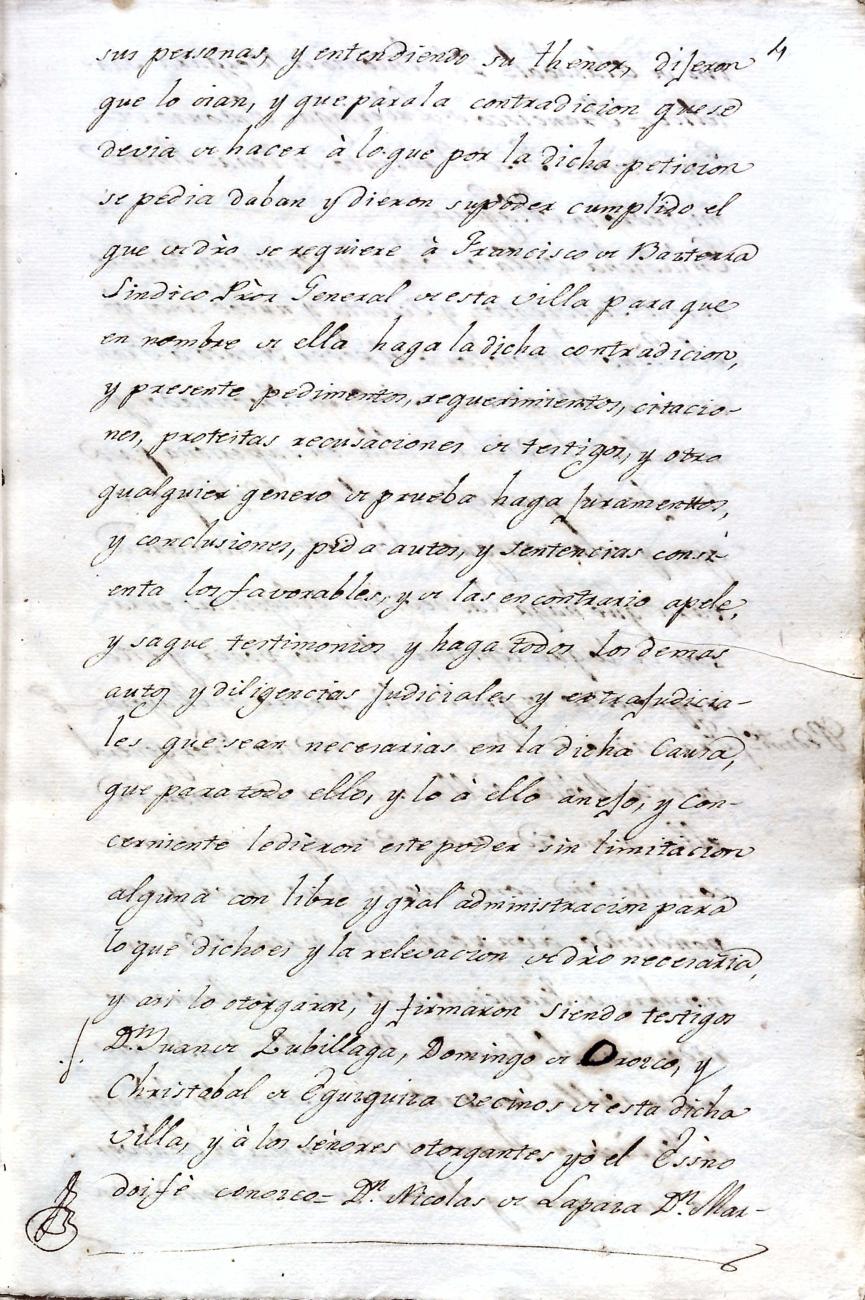 4
sus personas, y entendiendo su thenor, dijeron
que lo oian, y que para la contradicion que se
devia de hacer à lo que por la dicha peticion
se pedia daban y dieron su poder cumplido el
que de dr̃o se requiere à Francisco de Barterra
Sindico Pr̃or General de esta villa para que
en nombre de ella haga la dicha contradicion,
y presente pedimentos, requerimientos, citacio-
nes, protestas recusaciones de testigos, y otro
qualquier genero de prueba haga Juramentos,
y conclusiones, pida autos, y sentencias consi-
enta los favorables, y de las en contrario apele,
y saque testimonios y haga todos los demas
autos y diligencias Judiciales y extraJudicia-
les que sean necesarias en la dicha Causa,
que para todo ello, y lo à ello anejo, y Con-
cerniente le dieron este poder sin limitacion
alguna con libre y gr̃al administracion para
lo que dicho es y la relevacion de dr̃o necesaria,
y asi lo otorgaron, y firmaron siendo testigos
Dn. Juan de Zubillaga, Domingo de Orozco, y
Christobal de Eguiguiza vecinos de esta dicha
villa, y à los señores otorgantes yò el Essno
doi feè conozco = Dn. Nicolas de Lapaza Dn. Mar-